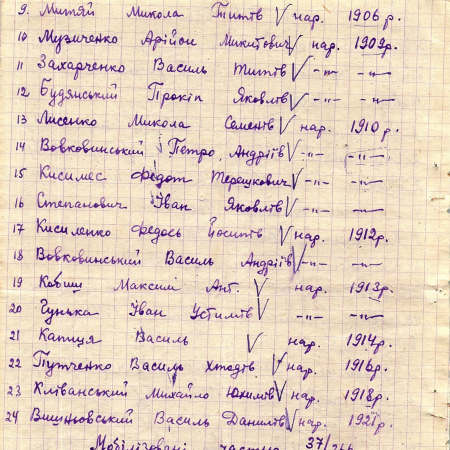 9. Митяй Микола Титів V нар. 1906 р.
10 Музиченко Арійон Микитович V нар. 1909 р.
11 Захарченко Василь Титів V -"- -"-
12 Будянський Прокіп Яковлів V -"- -"-
13 Лисенко Микола Семенів V нар. 1910 р.
14 Вовковинський Петро Андріїв V -"- -"-
15 Федот Терешкович V -"- -"-
16 Степанович Іван Яковлів V -"- -"-
17 Кисиленко Федось Йосипів V нар. 1912 р.
18 Вовковинський Василь Андріїв V -"- -"-
19 Максим Ант. V нар. 1913 р.
20 Гунька Іван Устимів V -"- -"-
21 Капиця Василь V нар. 1914 р.
22 Путченко Василь V нар. 1916 р.
23 Кліванський Михайло Юхимів V нар. 1918 р.
24 Вишньовський Василь Данилів V нар. 1921 р.
Мобілізовані частина 37/266